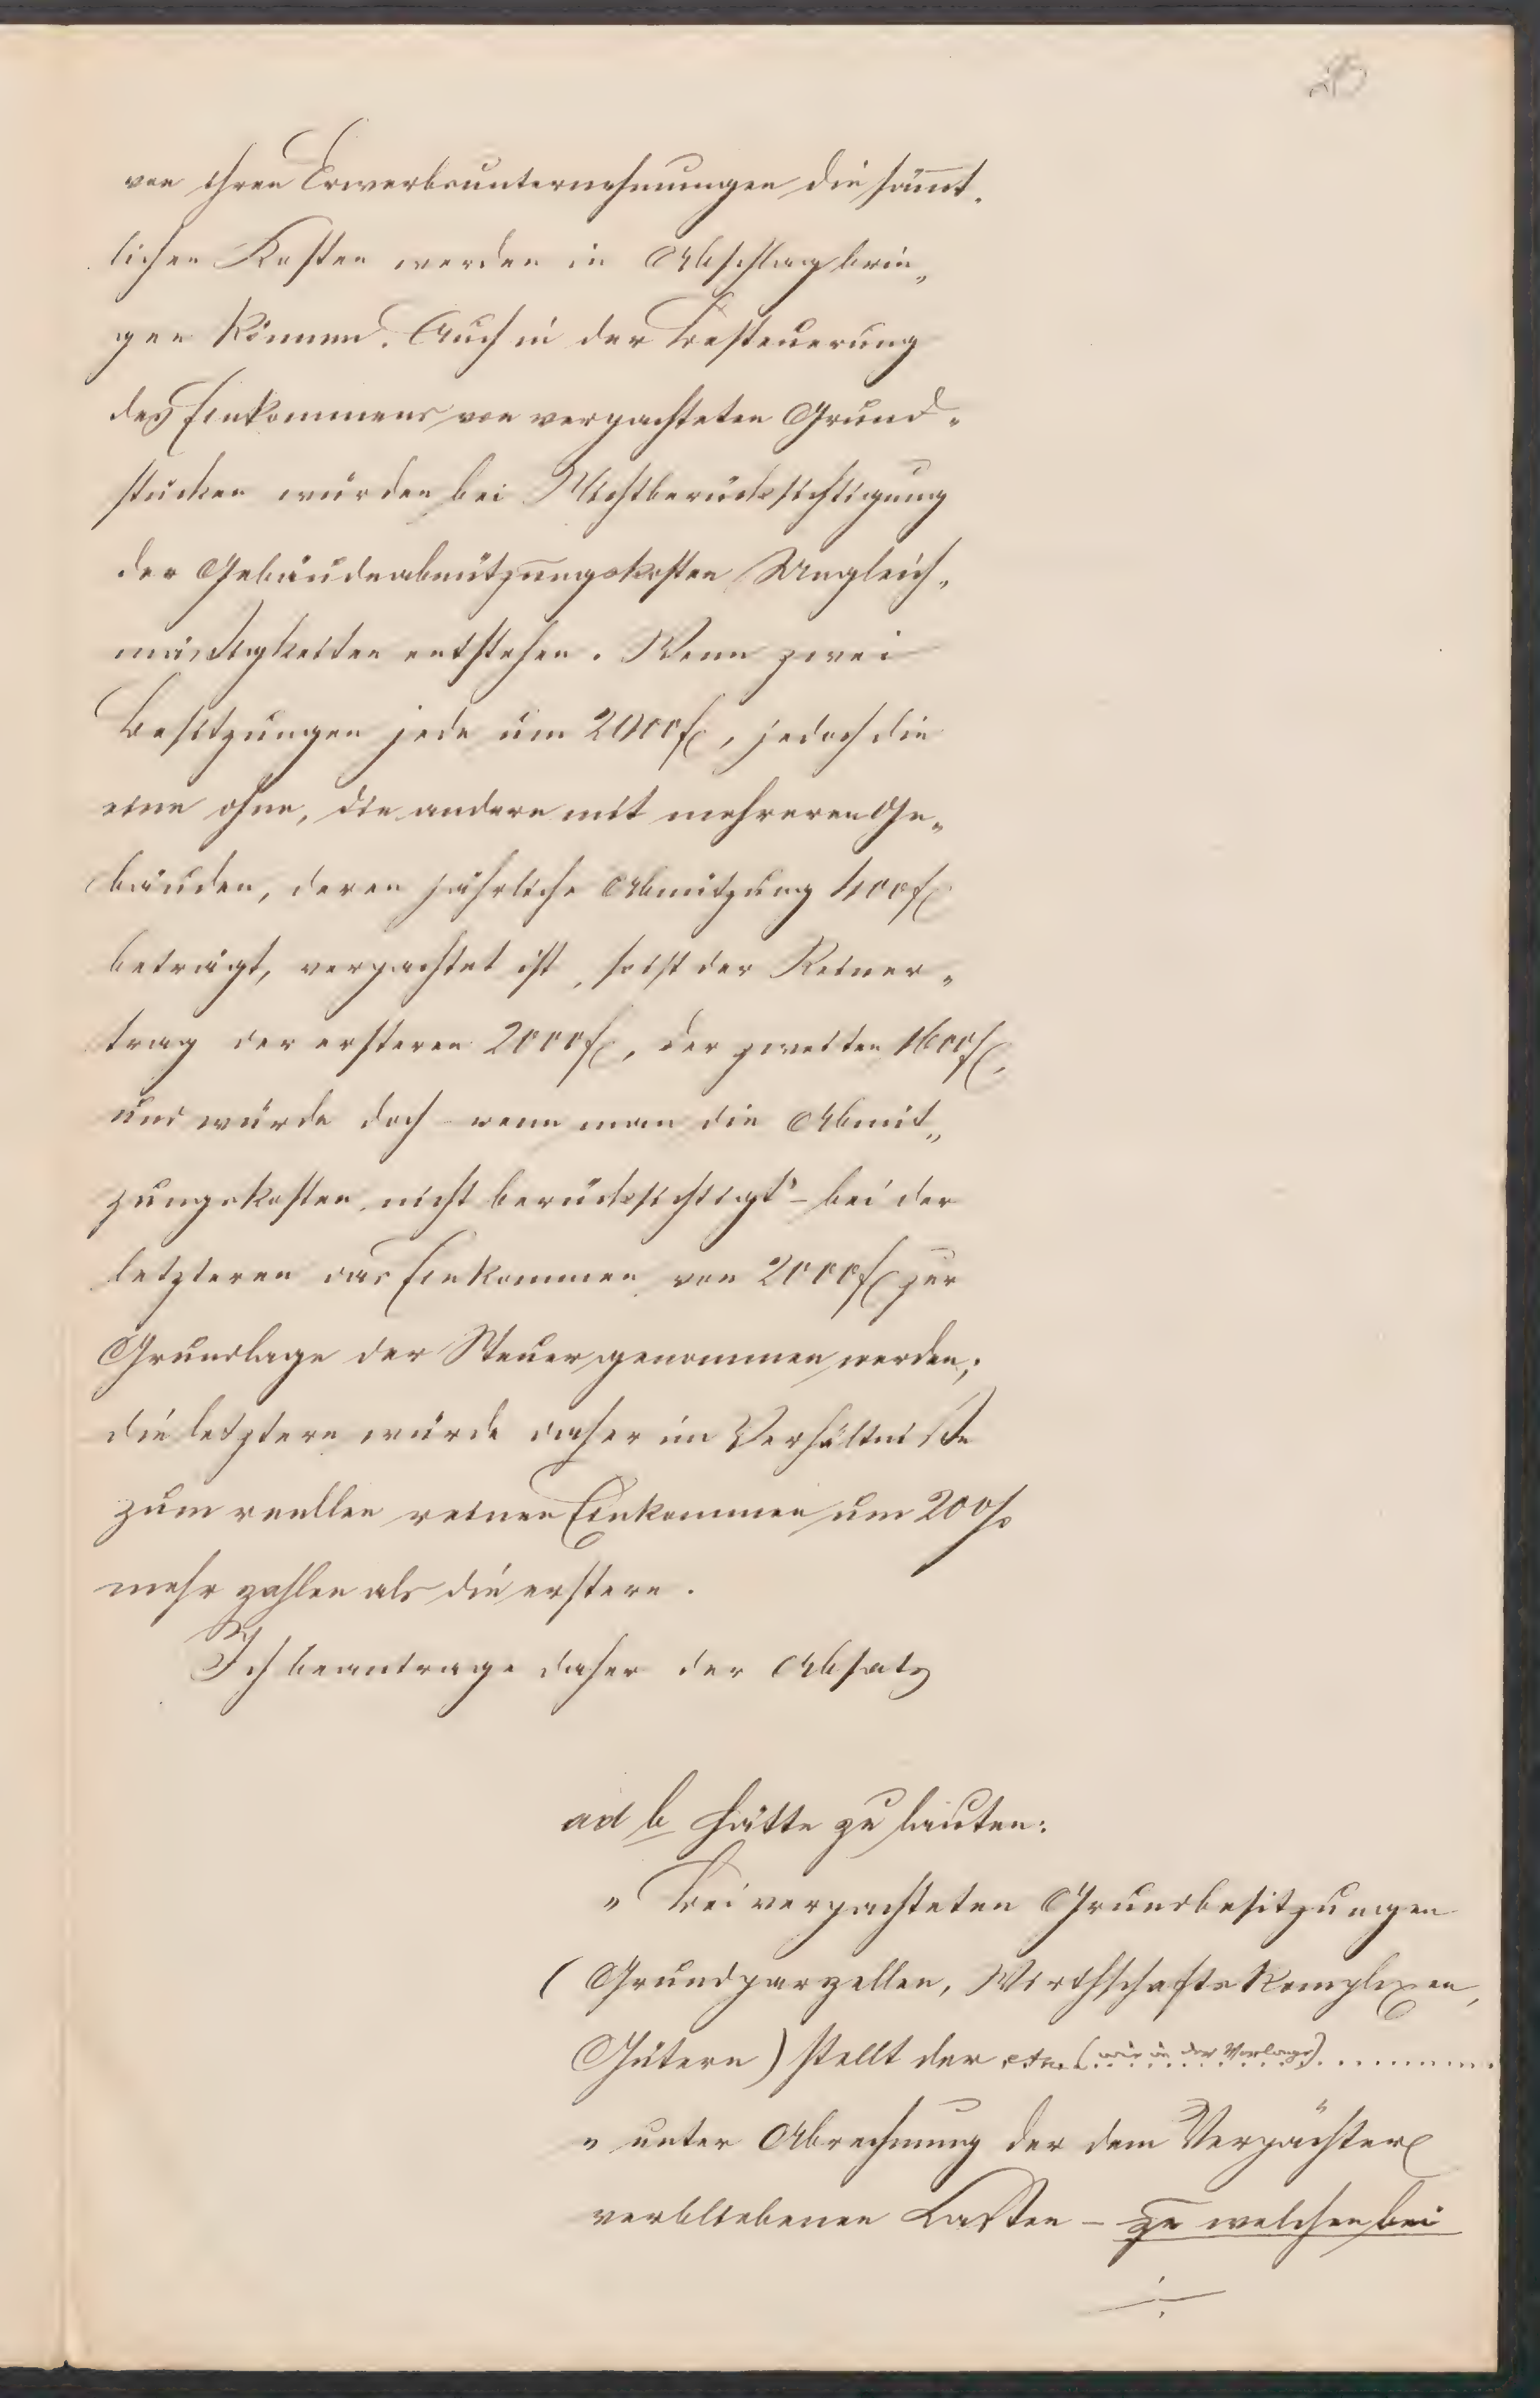 von ihren Erwerbsunternehmungen die sämt-
lichen Kosten werden in Abschlag brin-
gen können. Auch in der Besteuerung
des Einkommens von verpachteten Grund-
stücken würden bei Nichtberücksichtigung
der Gebäudeabnützungskosten Ungleich-
mäßigkeiten entstehen. Wenn zwei
Besitzungen jede um 2000 fl, jedoch die
eine ohne, die andere mit mehreren Ge-
bäuden, deren jährliche Abnützung 400 fl
beträgt, verpachtet ist, so ist der Reiner-
trag der ersteren 2000 fl, der zweiten 1600 fl,
und würde doch - wenn man die Abnüt-
zungskosten nicht berücksichtigt - bei der
letzteren das Einkommen von 2000 fl zur
Grundlage der Steuer genommen werden;
die letztere würde daher im Verhältniße
zum reellen reinen Einkommen um 20%
mehr zahlen als die erstere.
Ich beantrage daher der Absatz
ad b hätte zu lauten:
"Bei verpachteten Grundbesitzungen
(Grundparzellen, Wirthschaftskomplexen,
Gütern) stellt der etc. (wie in der Vorlage) ..........
"unter Abrechnung der dem Verpächter
verbliebenen Lasten - zu welchen bei